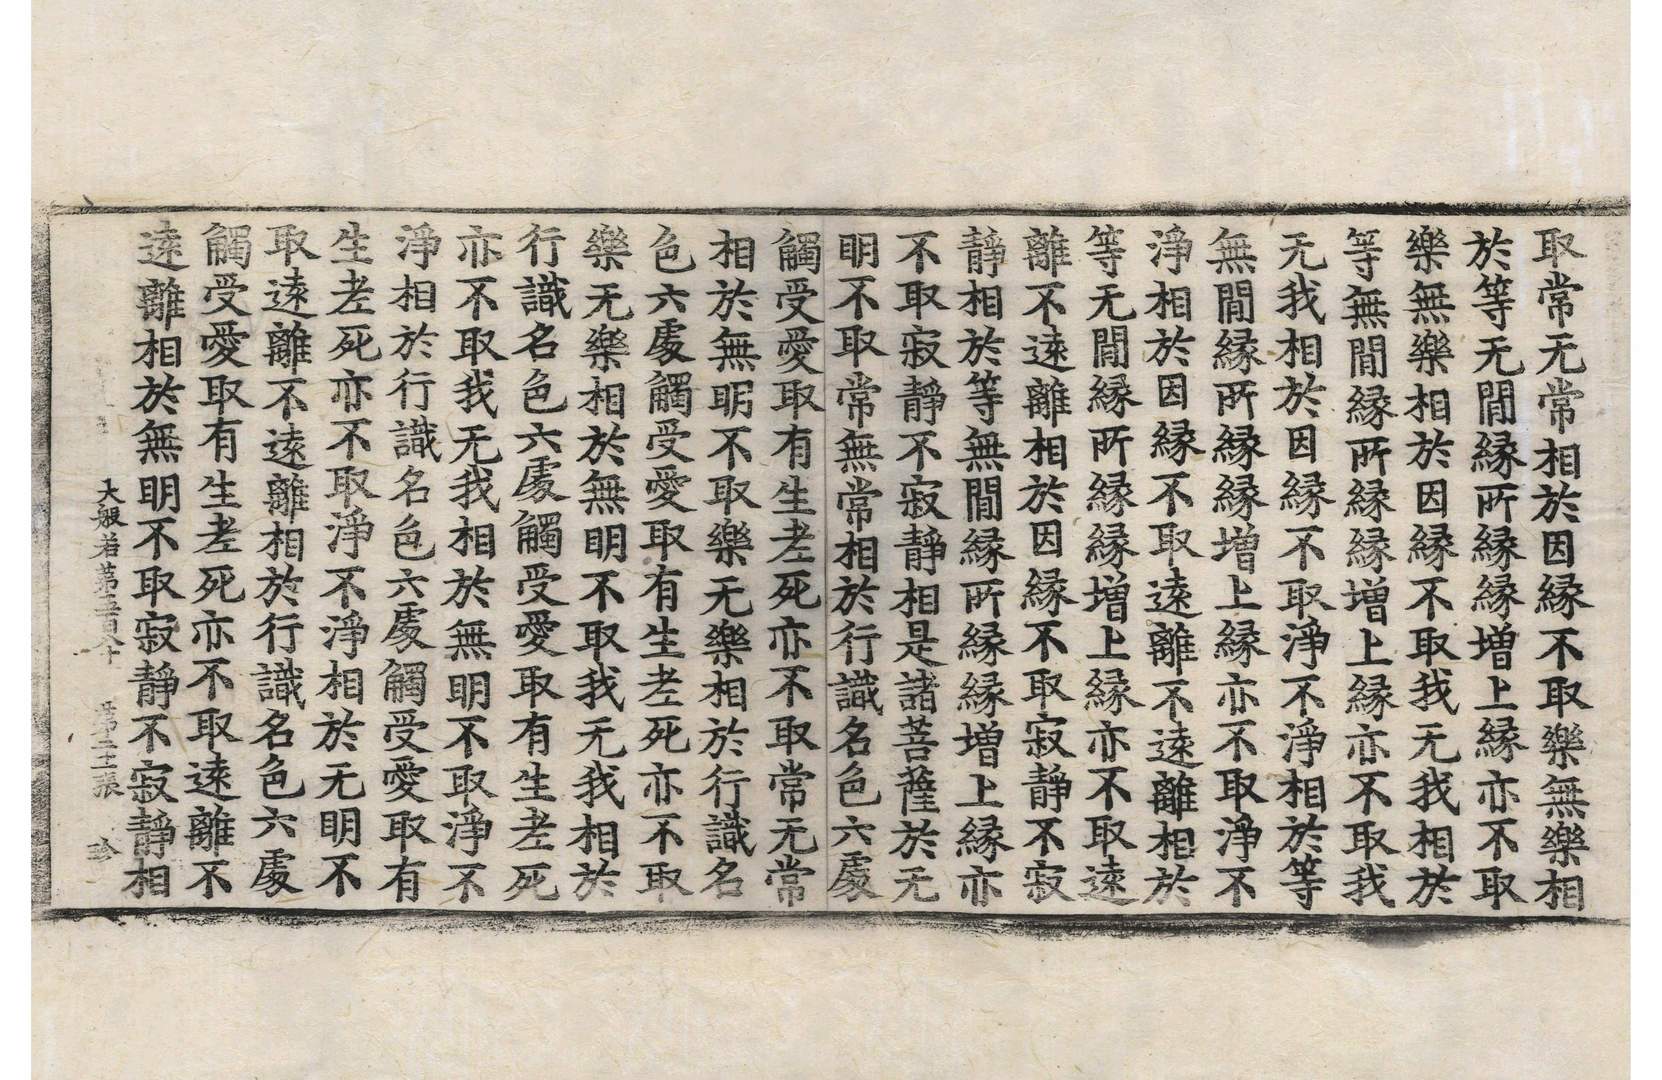 取常无常相於因縁不取樂無樂相
於等无閒縁所縁縁增上縁亦不取
樂無樂相於因縁不取我无我相於
等無閒縁所縁縁增上縁亦不取我
无我相於因縁不取淨不淨相於等
無閒縁所縁縁增上縁亦不取淨不
淨相於因縁不取遠離不遠離相於
等无閒縁所縁縁增上縁亦不取遠
離不遠離相於因縁不取寂靜不寂
靜相於等無閒縁所縁縁增上縁亦
不取寂靜不寂靜相是諸菩薩於无
明不取常無常相於行識名色六處
觸受愛取有生老死亦不取常无常
相於無明不取樂无樂相於行識名
色六處觸受愛取有生老死亦不取
樂无樂相於無明不取我无我相於
行識名色六處觸受愛取有生老死
亦不取我无我相於無明不取淨不
淨相於行識名色六處觸受愛取有
生老死亦不取淨不淨相於无明不
取遠離不遠離相於行識名色六處
觸受愛取有生老死亦不取遠離不
遠離相於無明不取寂靜不寂靜相
大般若第 張 珍